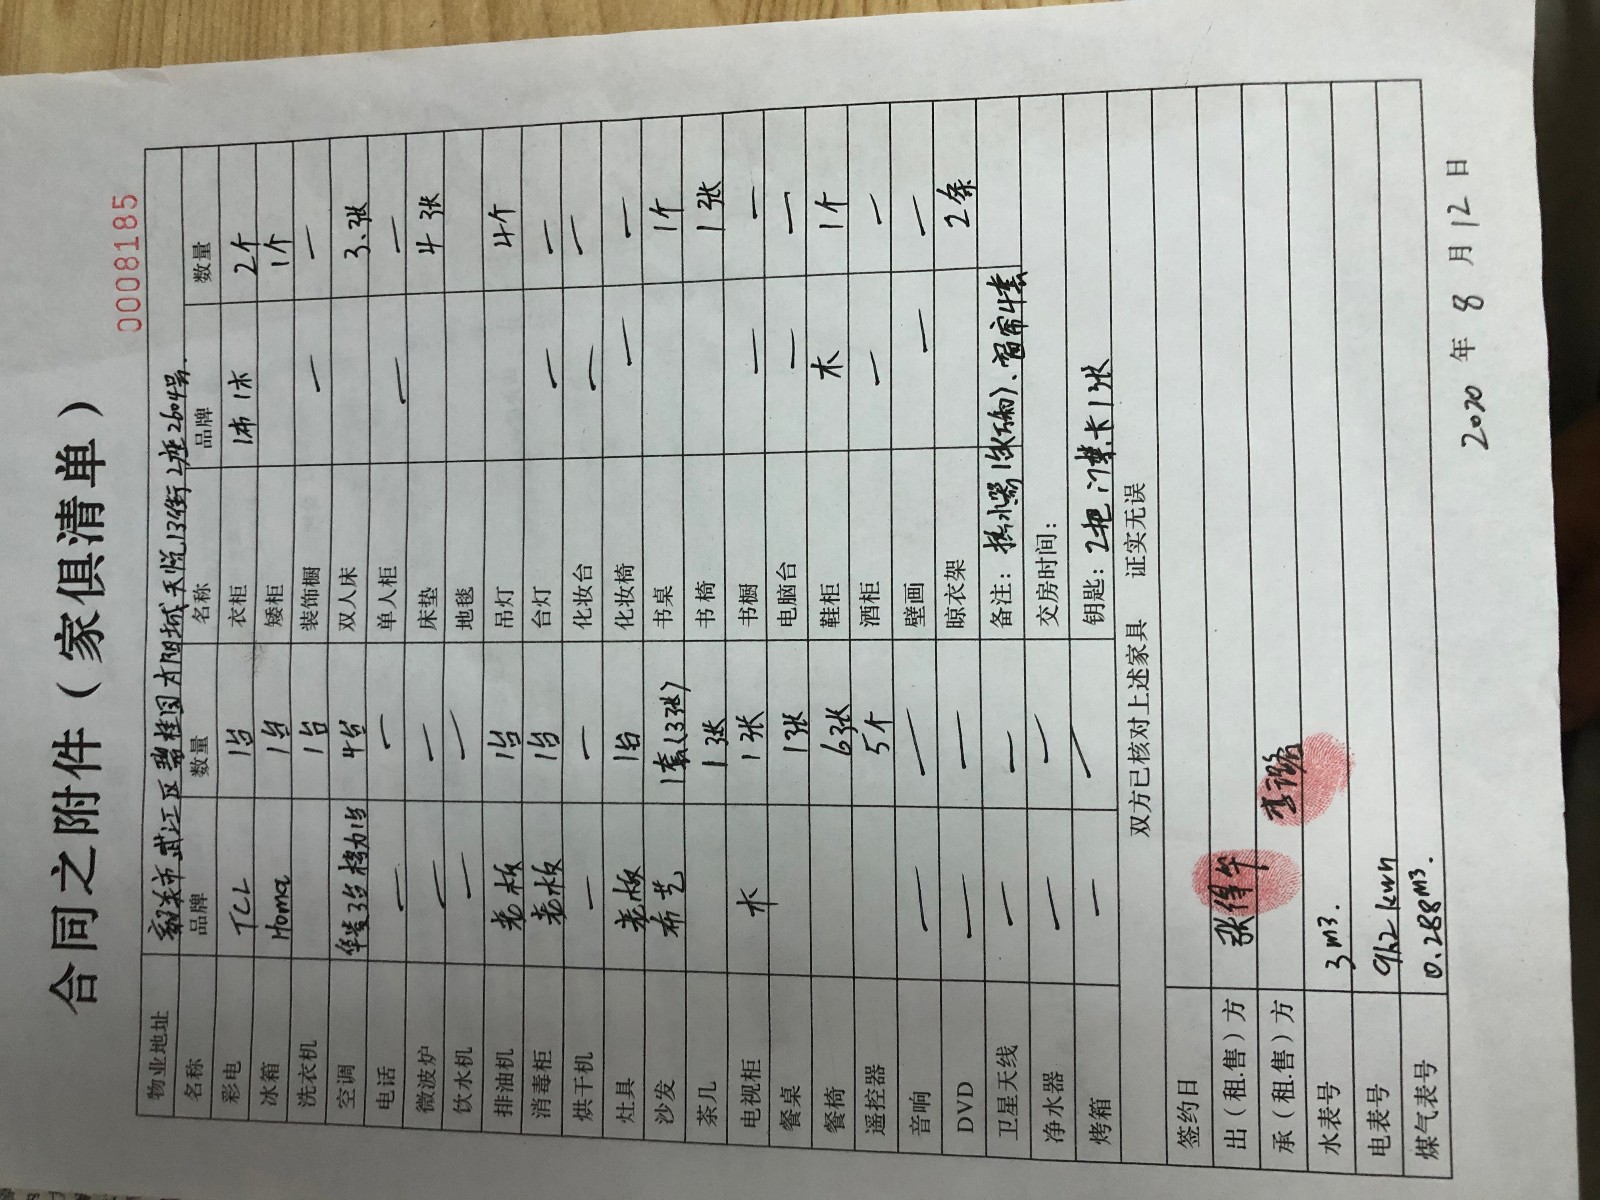 合同之附件（家俱清单）
0008185
物业地址 韶关市武江区碧桂园太阳城天悦13街2座2604号.
名称 品牌 数量 名称 品牌 数量
彩电 TCL 1台 衣柜 1布 1木 2个
冰箱 Homa 1台 矮柜 1个
洗衣机 1台 装饰橱 — —
空调 华凌3台 格力1台 4台 双人床 3张
电话 — — 单人柜 — —
微波炉 — — 床垫 4张
饮水机 — — 地毯
排油机 老板 1台 吊灯 4个
消毒柜 老板 1台 台灯 — —
烘干机 — — 化妆台 — —
灶具 老板 1台 化妆椅 — —
沙发 布艺 1套(3张) 书桌 1个
茶几 1张 书椅 1张
电视柜 木 1张 书橱 — —
餐桌 1张 电脑台 — —
餐椅 6张 鞋柜 木 1个
遥控器 5个 酒柜 — —
音响 — — 壁画 — —
DVD — — 晾衣架 2条
卫星天线 — — 备注：热水器1台(万和)、窗帘4套
净水器 — — 交房时间：
烤箱 — — 钥匙：2把 门禁卡1张
双方已核对上述家具 证实无误
签约日
出（租.售）方
承（租.售）方 李
水表号 3m³.
电表号 942kwh
煤气表号 0.288m³.
2020 年 8 月 12 日